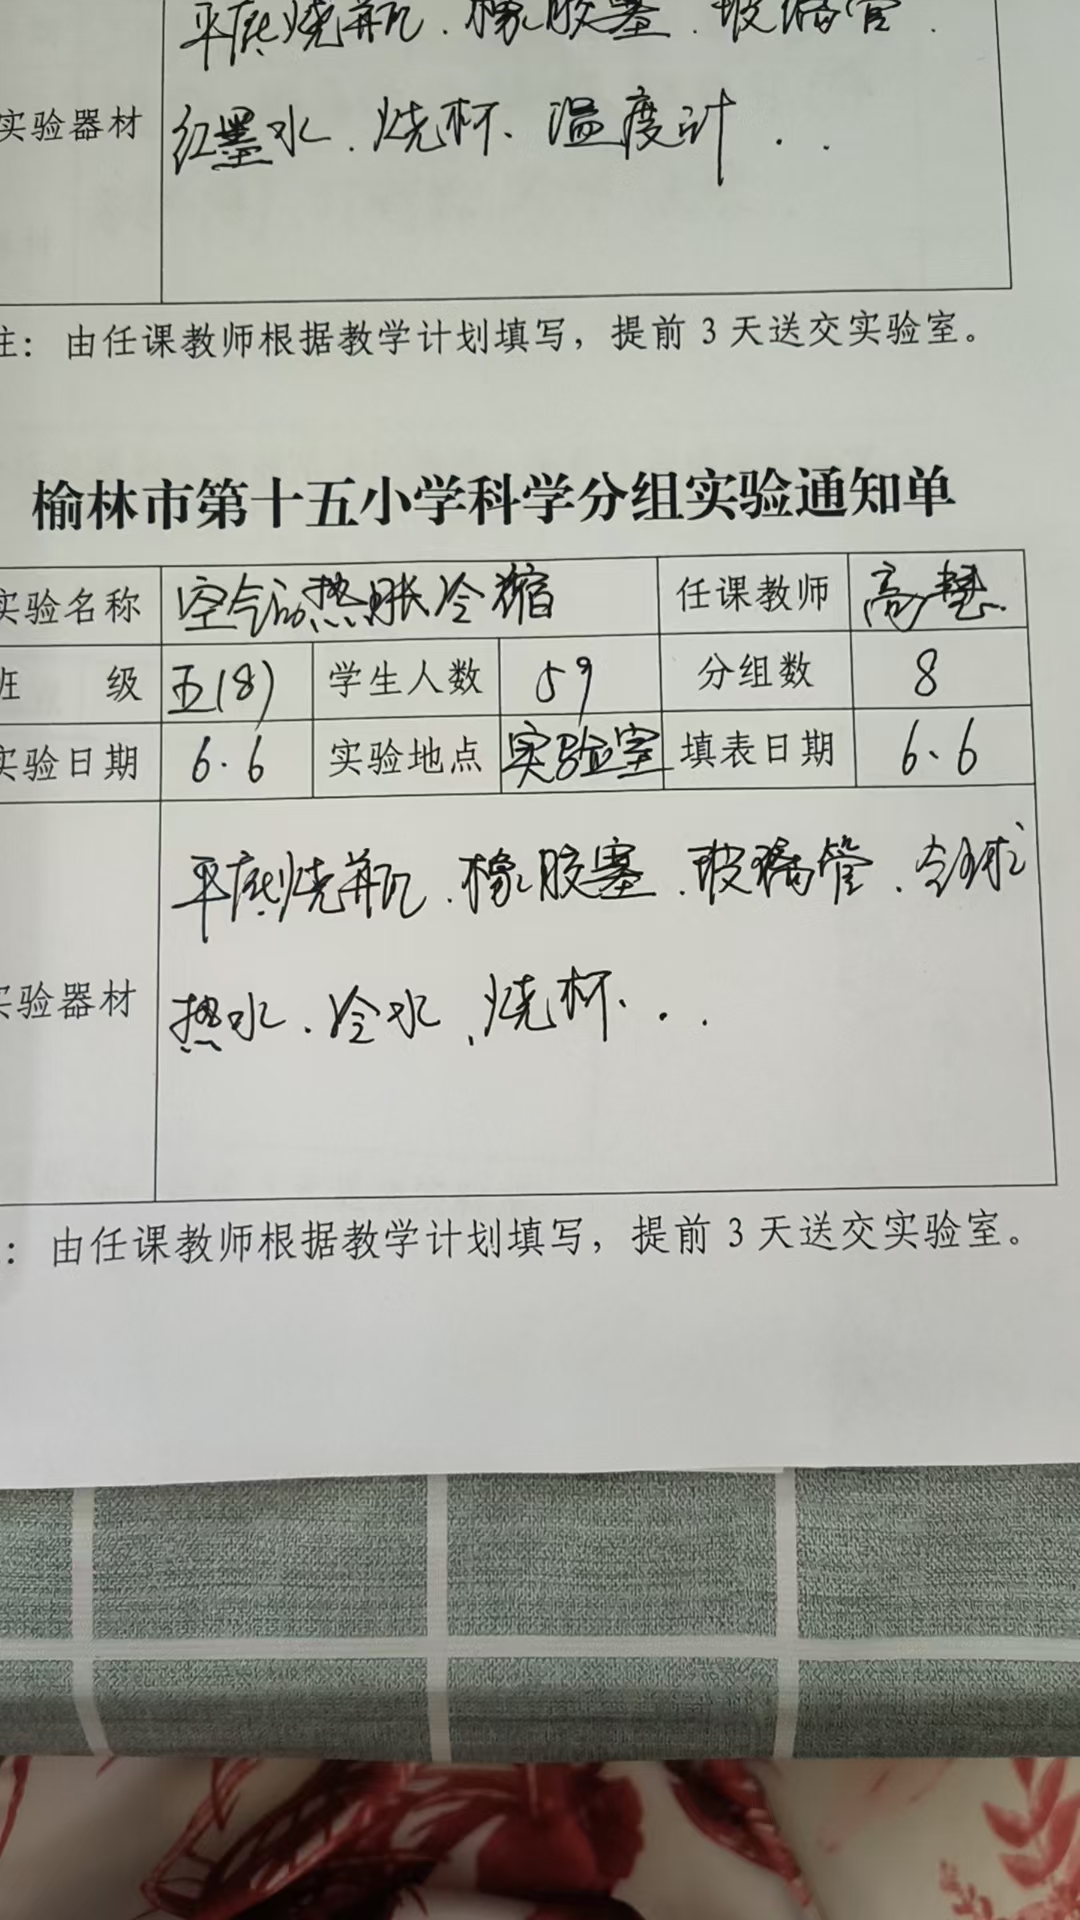 平底烧瓶.橡胶塞.玻璃管.
实验器材
红墨水.烧杯、温度计...
注：由任课教师根据教学计划填写，提前3天送交实验室。
榆林市第十五小学科学分组实验通知单
实验名称 空气的热胀冷缩 任课教师 高慧
班级 五(8) 学生人数 59 分组数 8
实验日期 6.6 实验地点 实验室 填表日期 6.6
平底烧瓶.橡胶塞.玻璃管.气球
实验器材
热水.冷水、烧杯...
：由任课教师根据教学计划填写，提前3天送交实验室。